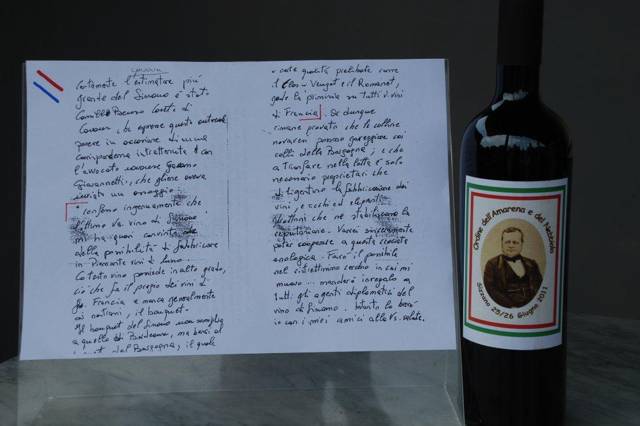 Cavour
Certamente l'estimatore più
grande del Sizzano è stato
Camillo Benso Conte di
Cavour, che espresse questo autorevole
parere in occasione di una
corrispondenza intrattenuta con
l'avvocato novarese Giacomo
Giovannetti, che gliene aveva
inviato un omaggio.
"Confesso ingenuamente che
l'ottimo vino di Sizzano
mi ha quasi convinto
della possibilità di fabbricare
in Piemonte vini di lusso.
Codesto vino possiede in alto grado,
ciò che fa il pregio dei vini di
Francia e manca generalmente
ai nostrani, il bouquet.
Il bouquet del Sizzano non somiglia
a quello di Bordeaux, ma bensì al
del Borgogna, il quale
qualità prelibate come
il Clos-Vougeot e il Romanet,
gode la priminia su tutti i vini
di Francia. Se dunque
rimane provato che le colline
novaresi possono gareggiare coi
colli della Borgogna; e che
a trionfare nella lotta è solo
necessario proprietari che
diligentino la fabbricazione dei
vini, e ricchi ed eleganti
che ne stabiliscano la
reputazione. Vorrei sinceramente
poter cooperare a questa crociata
enologica. Farò il possibile
nel ristrettissimo cerchio in cui mi
muovo... manderò in regalo a
tutti gli agenti diplomatici del
vino di Sizzano. Intanto, lo bevo
io con i miei amici alla Vs. salute.
Ordine dell'Amarena e del Nebbiolo
Sizzano 25/26 Giugno 2011